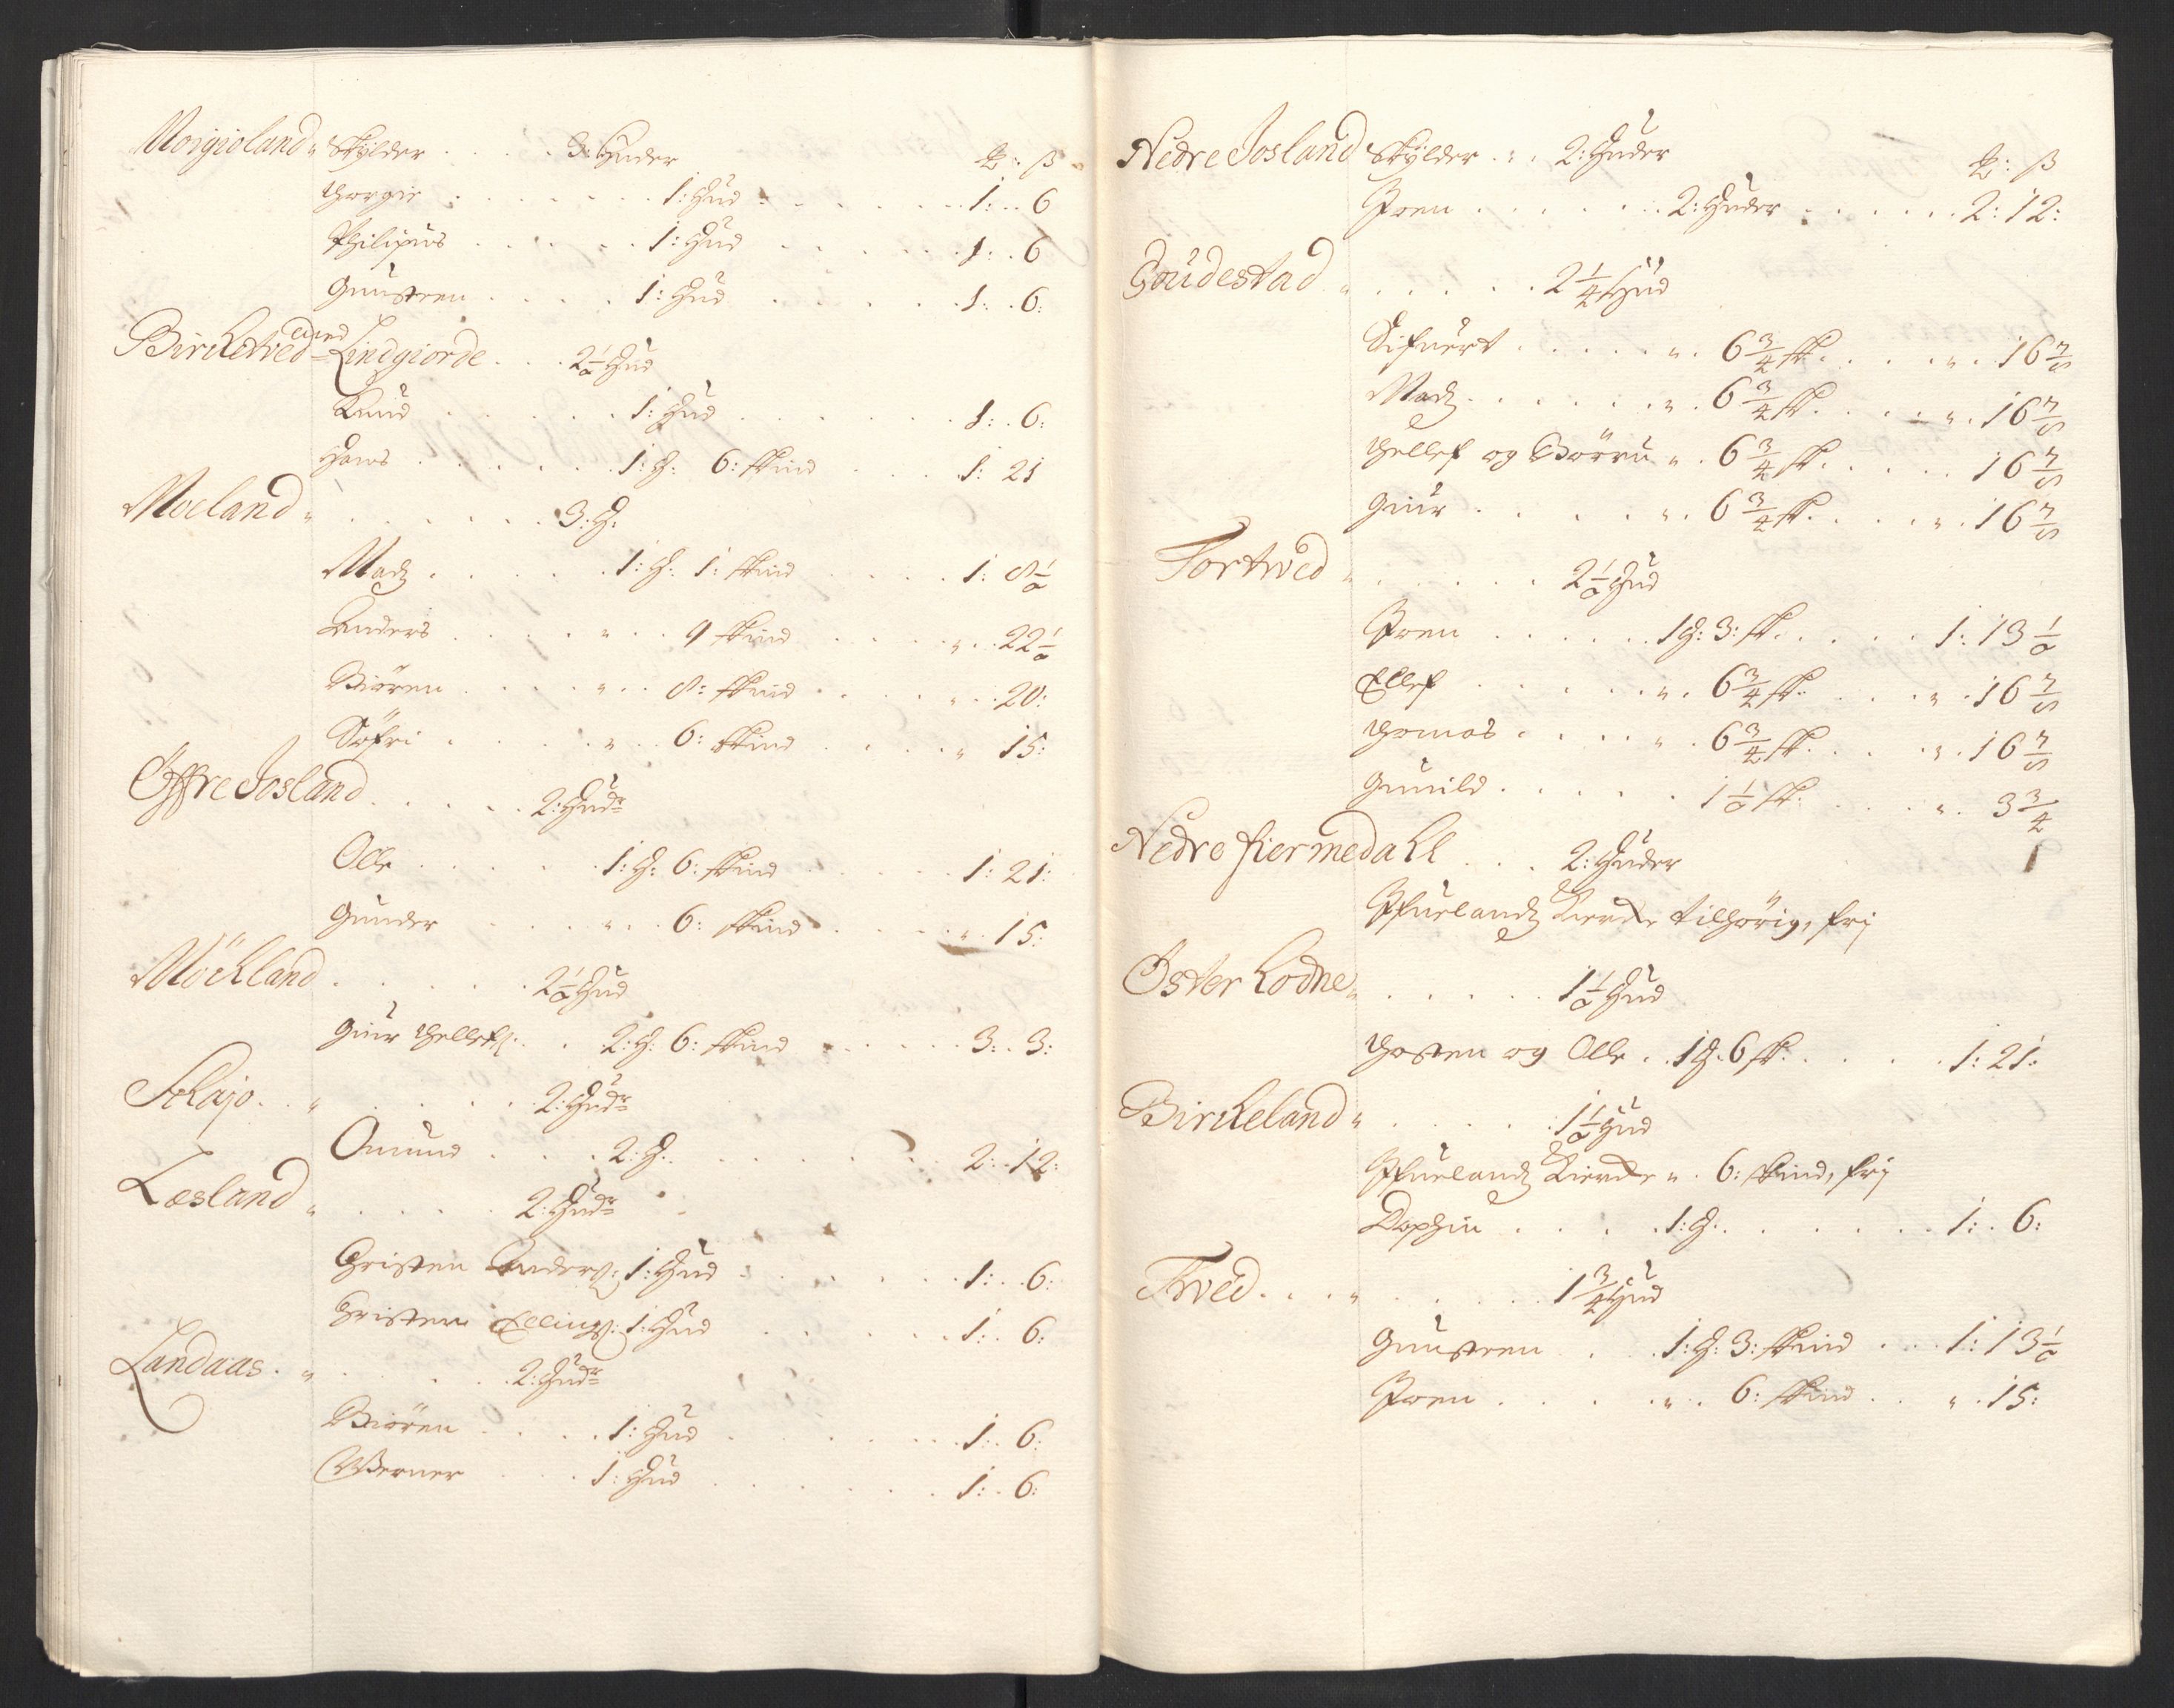 Moigioland „ Skylder . . . . 3: Huder &: ß
Thorgie . . . . . . 1: Hud . . . . . . 1: . 6
Philipus . . . . . 1: Hud . . . . . . 1: . 6
Gunsteen . . . . . 1: Hud . . . . . . 1: . 6:
Birchetved med Lindgiorde . . . 2½ Hud
Knud . . . . . . 1: Hud . . . . . . 1: . 6:
Hans . . . . . . 1: H: 6: skind . . . 1: 21
Moeland „ . . . . . . 3: H:
Madz . . . . . 1: H: 1: skind . . . . 1: 8½
Anders . . . . „ . . 9 skind . . . . „ . 22½
Biören . . . . „ . . 8: skind . . . . „ . 20:
Söfri . . . . . „ . . 6: skind . . . . „ 15:
Öffre Josland . . . . . 2: Hudr
Olle . . . . . 1: H: 6: skind . . . . 1: 21:
Gunder . . . . „ . . 6: skind . . . . „ 15:
Möchland . . . . . . 2½ Hud
Giur Thellefs: . . 2: H: 6: skind . . . . . 3: . 3:
Schajo . . „ . . . . . 2: Hudr
Omund . . . . 2: H: . . . . . . 2: . 12:
Læsland „ . . . . . 2: Hudr
Christen Anders: 1: Hud . . . . . . 1: . 6:
Christen Ellings: 1: Hud . . . . . . 1: . 6:
Landaas . „ . . . . . 2: Hudr
Biören . . . . 1: Hud . . . . . . 1: . 6:
Werner . . . 1: Hud . . . . . . 1: . 6:
Nedre Josland Skylder . . . 2: Huder &: ß
Joen . . . . . . 2: Huder . . . . . . 2: 12:
Goudestad „ . . . . . 2¼ Hud
Sifuert . . . . . „ . 6¾ sk. . . . . „ . 16⅞
Madz . . . . . „ . 6¾ sk. . . . . „ . 16⅞
Thellef og Börru „ . 6¾ sk. . . . . 16⅞
Giur . . . . . „ . 6¾ sk. . . . . „ . 16⅞
Tortved „ . . . . . 2½ Hud
Joen . . . . . 1 H: 3: sk. . . . . 1: 13½
Ellef . . . . . „ . 6¾ sk. . . . „ . 16⅞
Thomas . . . . „ . 6¾ sk. . . . „ . 16⅞
Gunild . . . . . 1½ sk. . . . . „ . 3¾
Nedre fiermedahl . . . 2: Huder
Ifuelandz Kierche tilhörig, frj
Öster Kodne „ . . . . . 1½ Hud
Thosten og Olle . . 1 H. 6 sk. . . . . 1: 21:
Birckeland „ . . . . . 1½ Hud
Ifuelandz Kierche „ . 6: skind, frj
Dophin . . . . 1: H: . . . . . . 1: . 6:
Tved . . . „ . . . . . 1¾ Hud
Gunsteen . . 1: H: 3: skind . . . 1: 13½
Joen . . . . „ . 6: skind . . „ . 15: